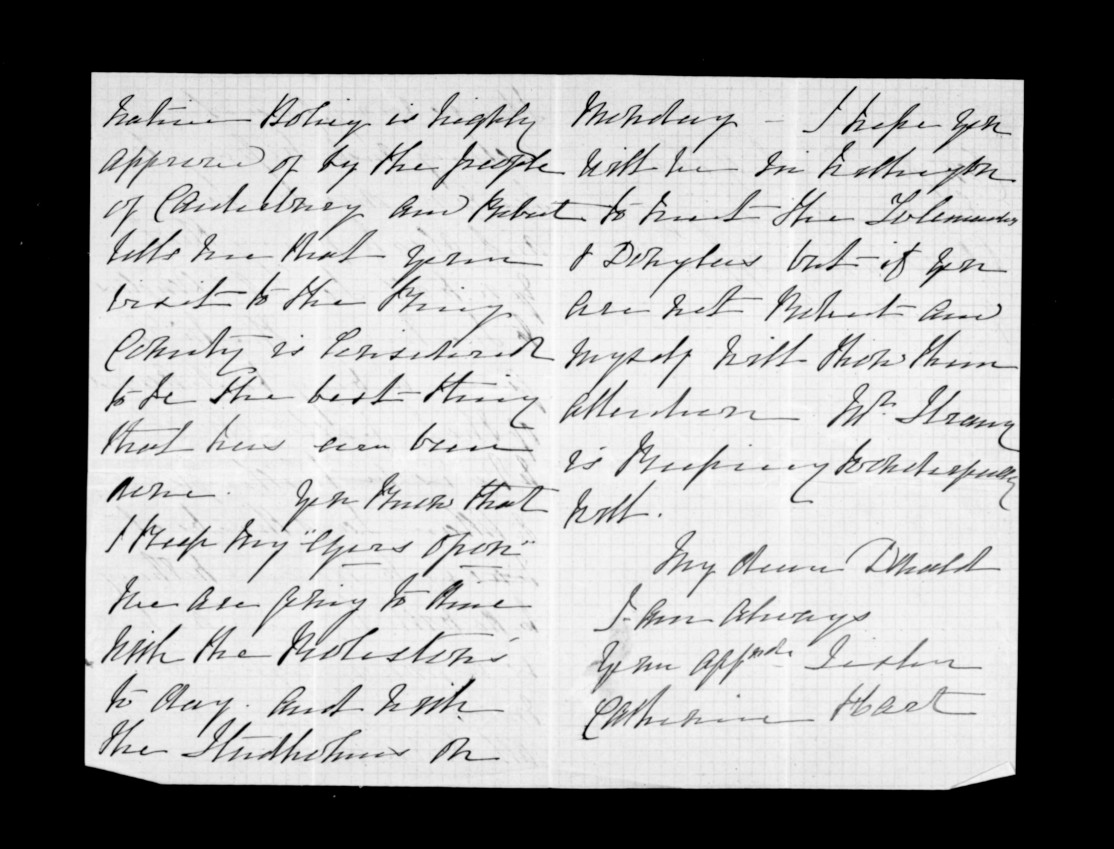 native Policy is highly
approved of by the people
of Canterbury and Robert
tells me that your
visit to the King
Country is considered
to be the best thing
that has ever been
done. You know that
I keep my "Eyes open"
we are going to dine
with the Rolleston's
to day. and with
the Studholmes on
Monday - I hope you
will be in Wellington
to meet the
& Douglas but if you
are not Robert and
myself will show them
attention Mr. Strang
is keeping wonderfully
well.
My dear Donald
I am always
Your affnate Sister
Catherine Hart